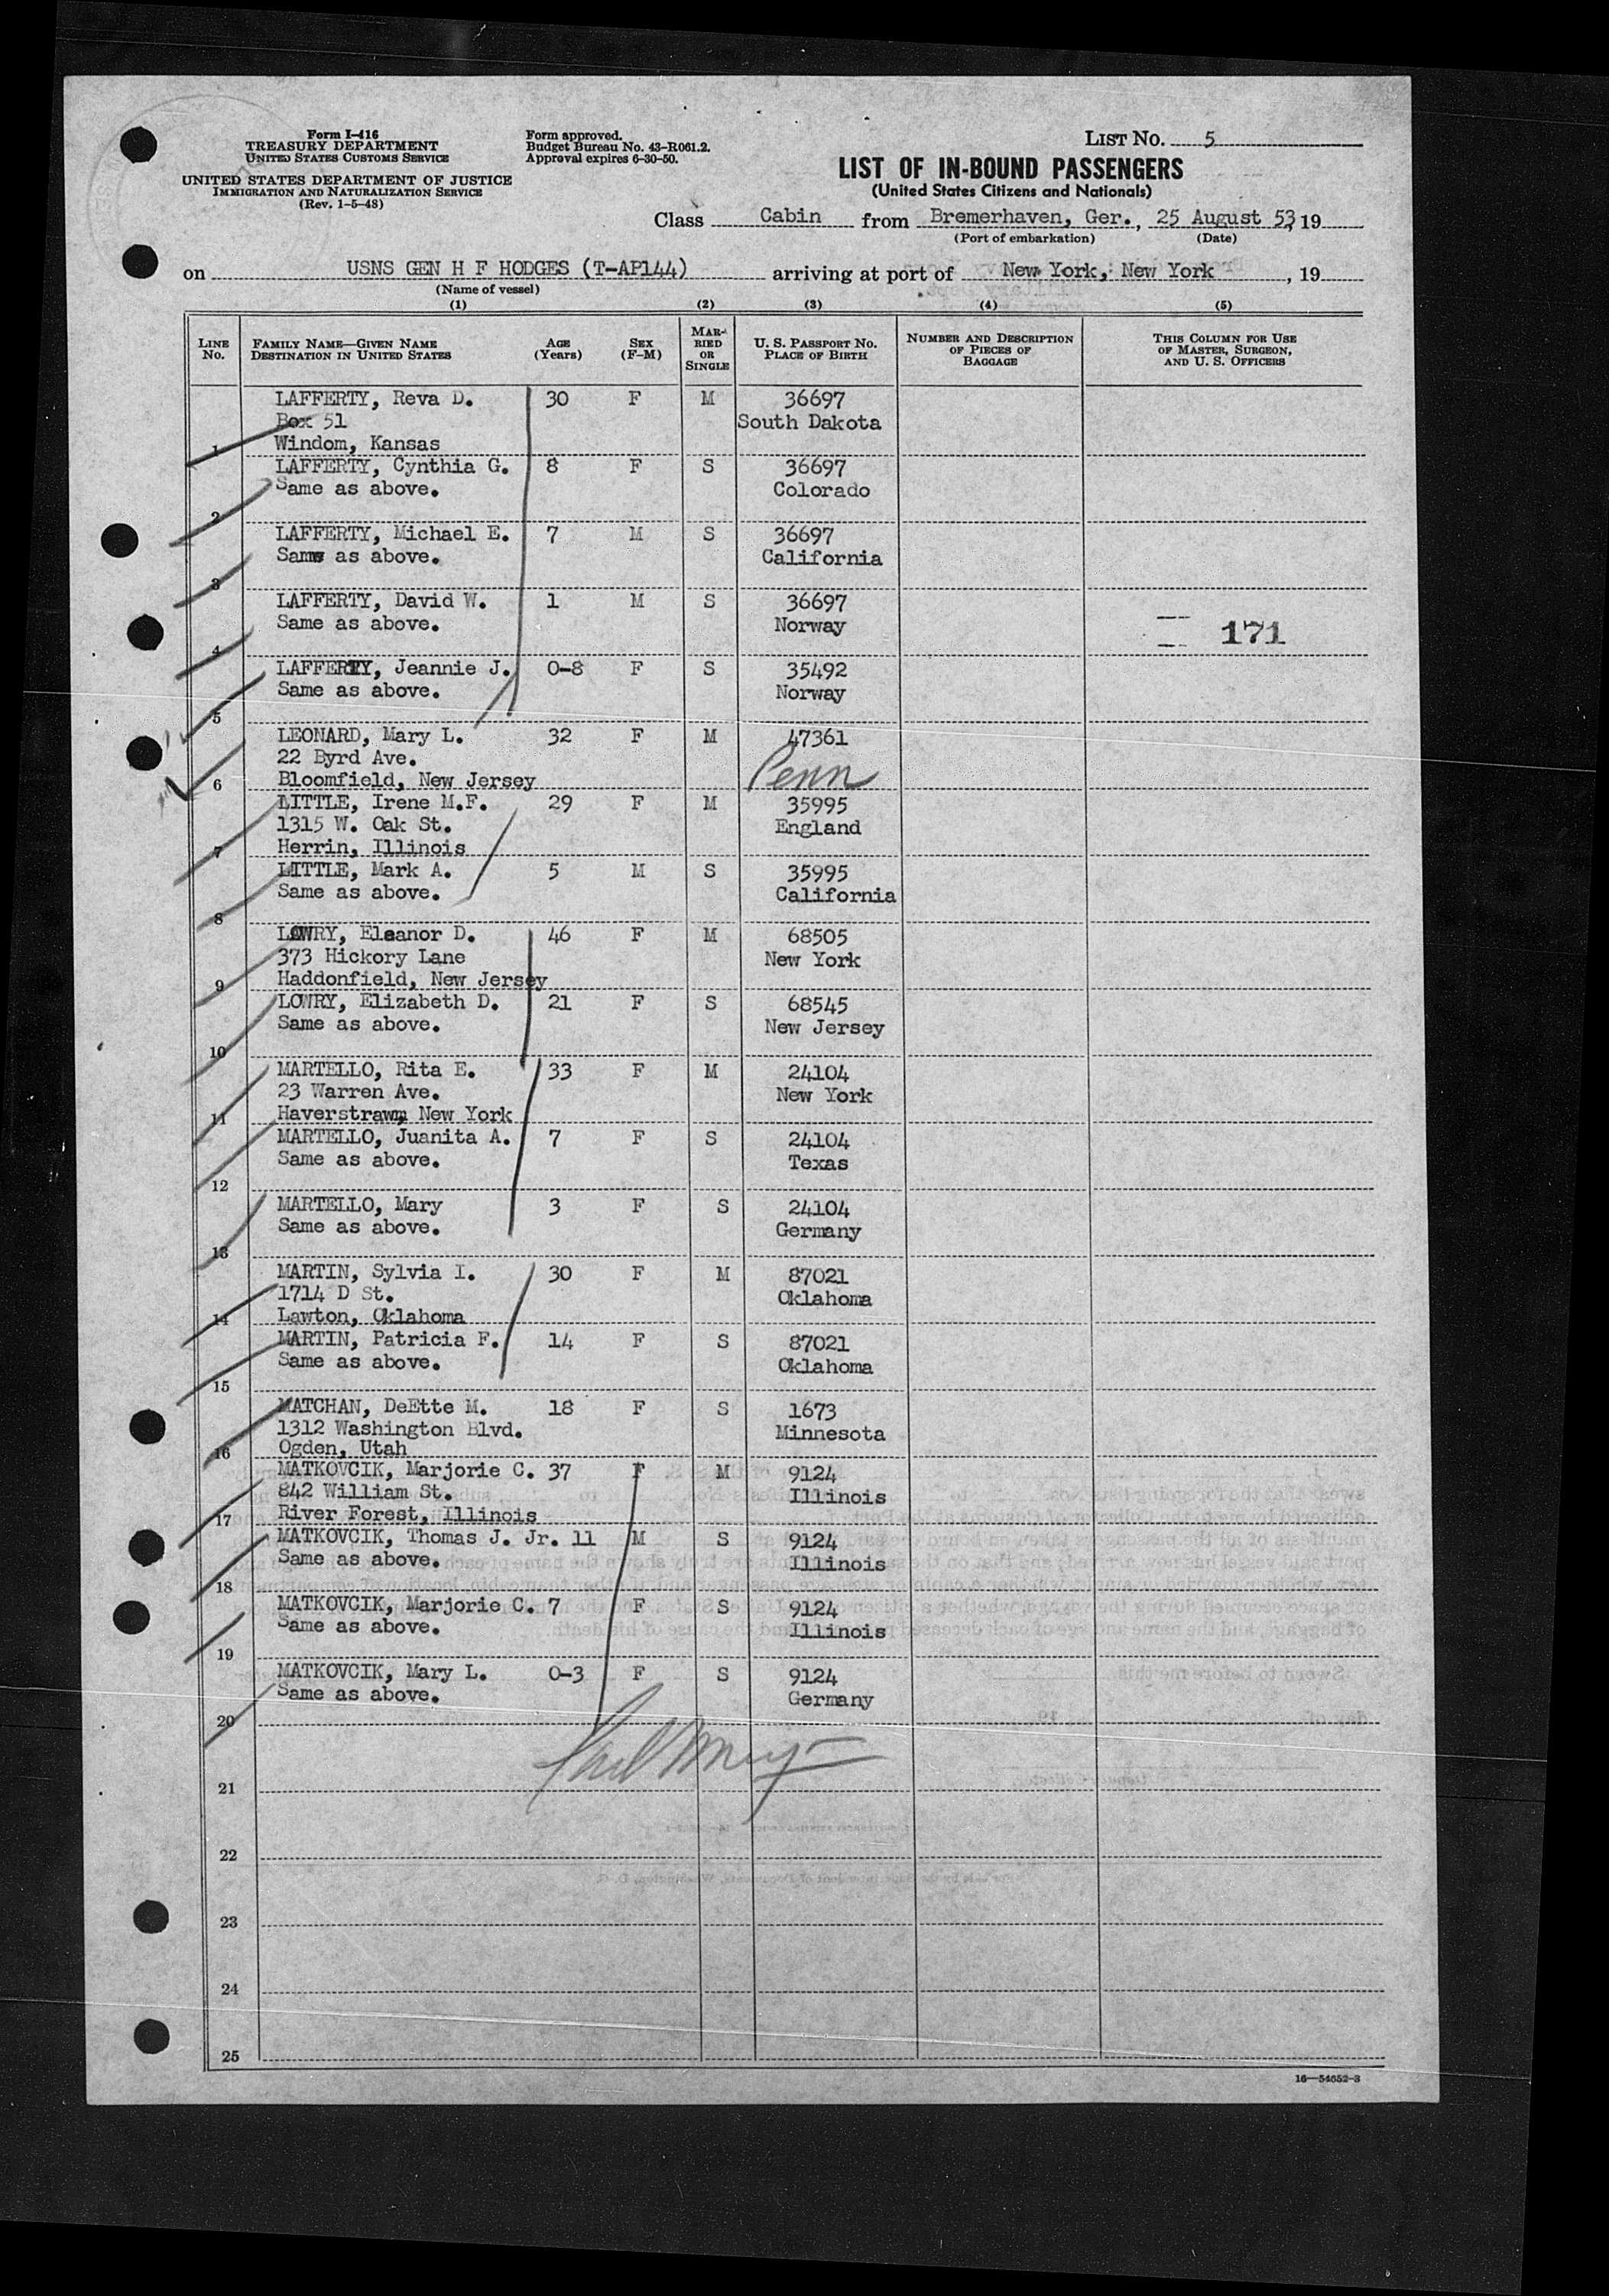 Form I-416
TREASURY DEPARTMENT
UNITED STATES CUSTOMS SERVICE
UNITED STATES DEPARTMENT OF JUSTICE
IMMIGRATION AND NATURALIZATION SERVICE
(Rev. 1-5-48)
Form approved.
Budget Bureau No. 43-R061.2.
Approval expires 6-30-50.
LIST No. 5
LIST OF IN-BOUND PASSENGERS
(United States Citizens and Nationals)
Class Cabin from Bremerhaven, Ger., 25 August 53, 19
(Port of embarkation) (Date)
on USNS GEN H F HODGES (T-AP144) arriving at port of New York, New York, 19
(Name of vessel)
(1) (2) (3) (4) (5)
LINE No. FAMILY NAME—GIVEN NAME DESTINATION IN UNITED STATES AGE (Years) SEX (F-M) MARRIED OR SINGLE U. S. PASSPORT No. PLACE OF BIRTH NUMBER AND DESCRIPTION OF PIECES OF BAGGAGE THIS COLUMN FOR USE OF MASTER, SURGEON, AND U. S. OFFICERS
LAFFERTY, Reva D. 30 F M 36697
Box 51 South Dakota
1 Windom, Kansas
LAFFERTY, Cynthia G. 8 F S 36697
Same as above. Colorado
2
LAFFERTY, Michael E. 7 M S 36697
Same as above. California
3
LAFFERTY, David W. 1 M S 36697
Same as above. Norway
171
4
LAFFERTY, Jeannie J. 0-8 F S 35492
Same as above. Norway
5
LEONARD, Mary L. 32 F M 47361
22 Byrd Ave. Penn
6 Bloomfield, New Jersey
LITTLE, Irene M.F. 29 F M 35995
1315 W. Oak St. England
7 Herrin, Illinois
LITTLE, Mark A. 5 M S 35995
Same as above. California
8
LOWRY, Eleanor D. 46 F M 68505
373 Hickory Lane New York
9 Haddonfield, New Jersey
LOWRY, Elizabeth D. 21 F S 68545
Same as above. New Jersey
10
MARTELLO, Rita E. 33 F M 24104
23 Warren Ave. New York
11 Haverstraw, New York
MARTELLO, Juanita A. 7 F S 24104
Same as above. Texas
12
MARTELLO, Mary 3 F S 24104
Same as above. Germany
13
MARTIN, Sylvia I. 30 F M 87021
1714 D St. Oklahoma
14 Lawton, Oklahoma
MARTIN, Patricia F. 14 F S 87021
Same as above. Oklahoma
15
MATCHAN, DeEtte M. 18 F S 1673
1312 Washington Blvd. Minnesota
16 Ogden, Utah
MATKOVCIK, Marjorie C. 37 F M 9124
842 William St. Illinois
17 River Forest, Illinois
MATKOVCIK, Thomas J. Jr. 11 M S 9124
Same as above. Illinois
18
MATKOVCIK, Marjorie C. 7 F S 9124
Same as above. Illinois
19
MATKOVCIK, Mary L. 0-3 F S 9124
Same as above. Germany
20
21
22
23
24
25
16—54652-3